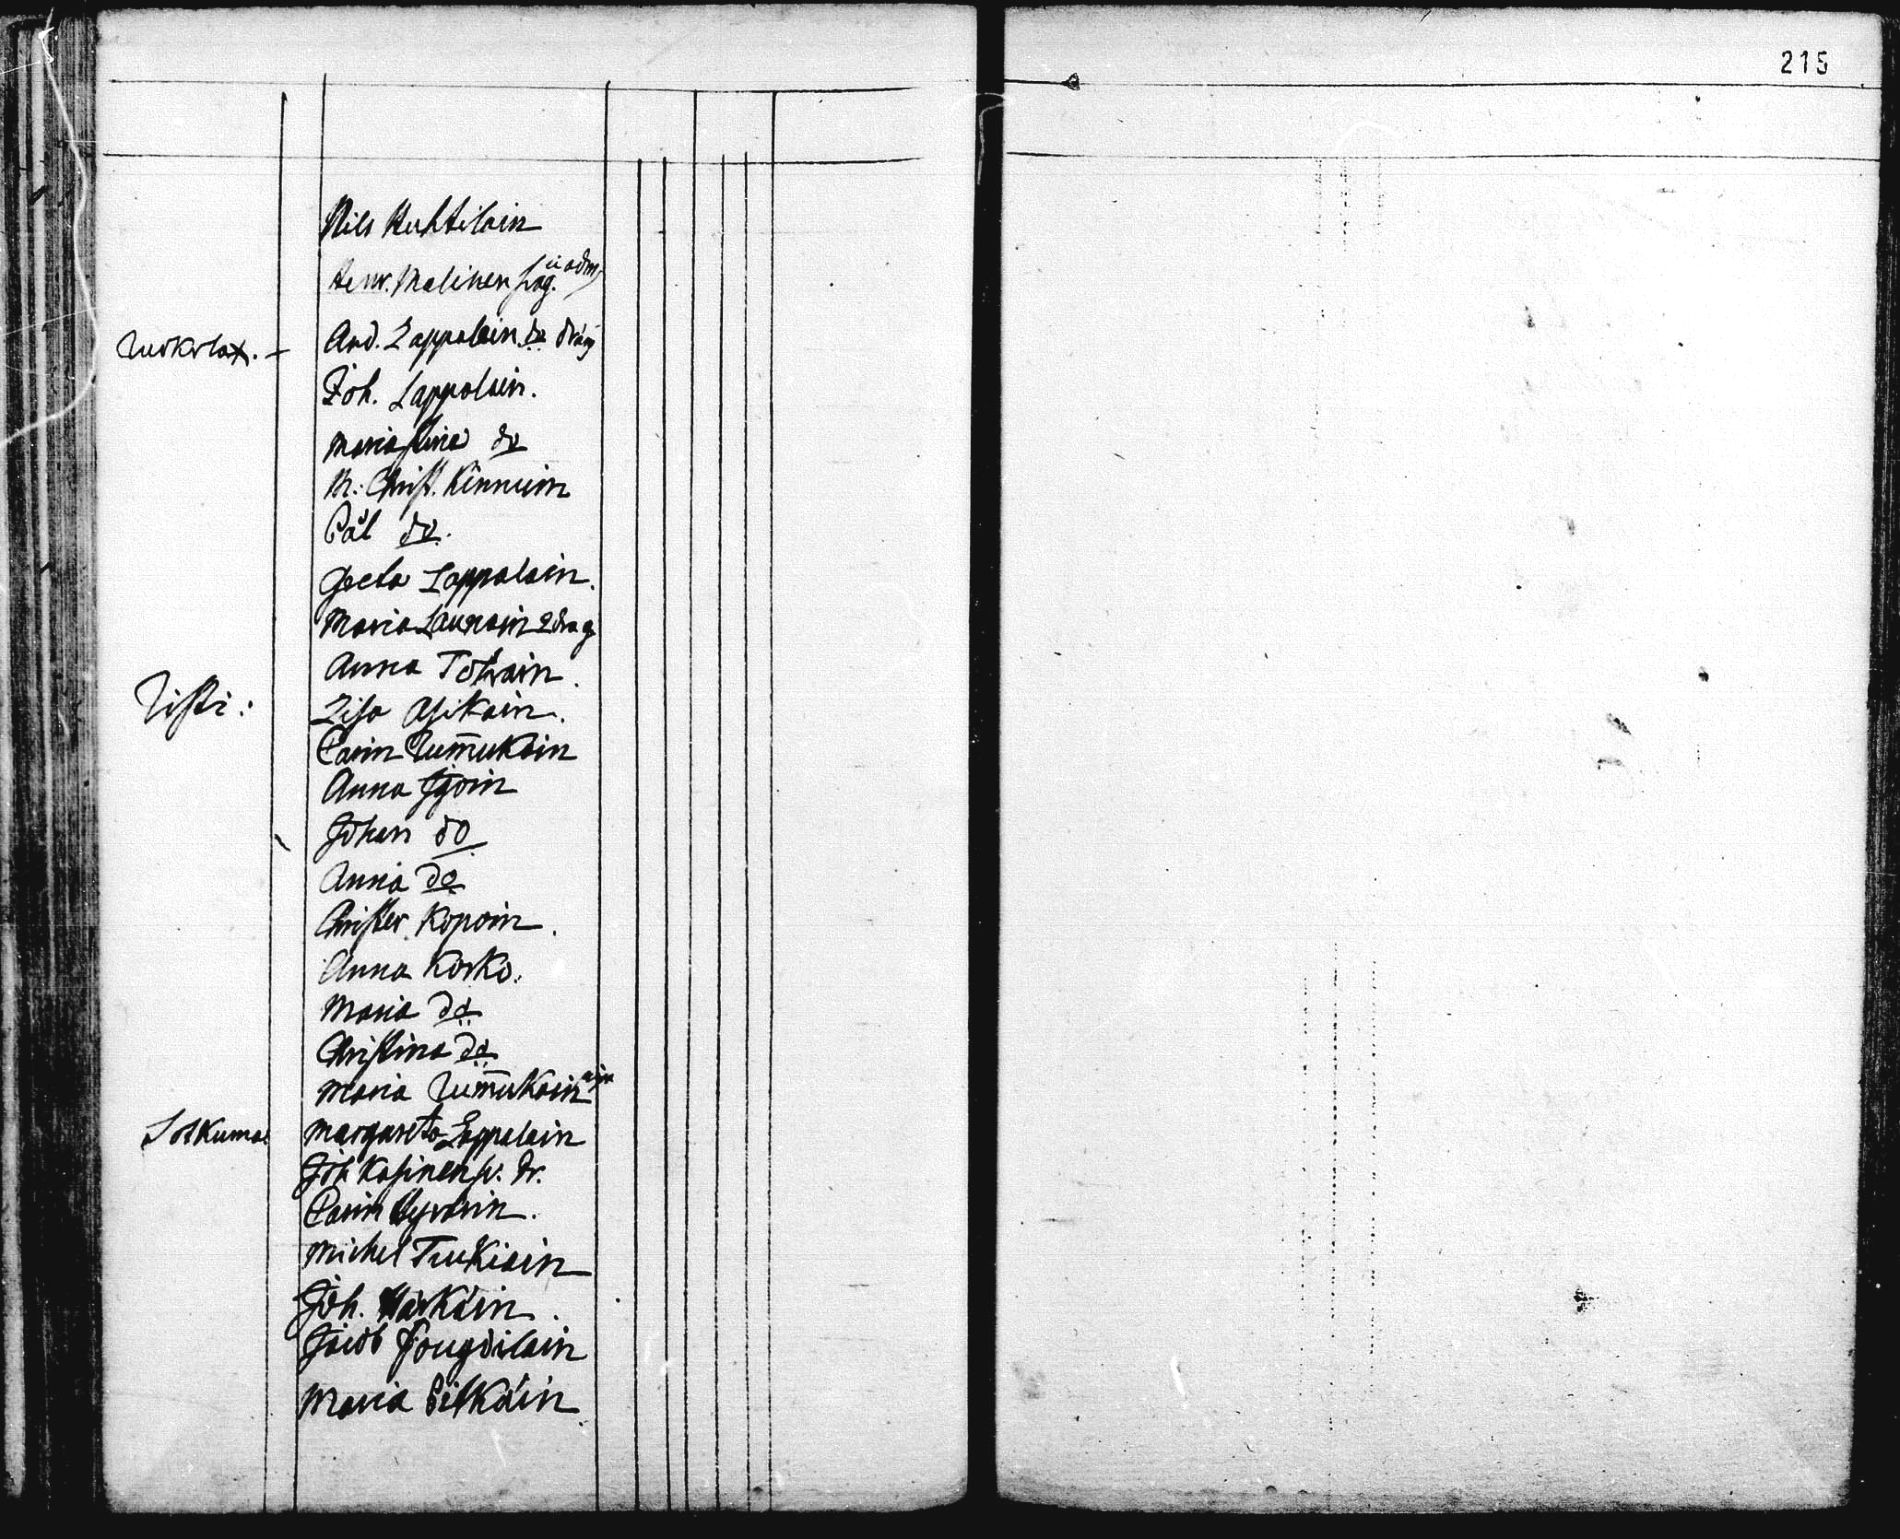 215
Nils Huhtilain
Henr. Malinen
And. Lappalain do drag
Joh. Lappalain.
Maria Stina do
M: Christ. Kinnuin
Pål do.
Greta Lappalain.
Maria Launain 2 drag
Anna Tolvain.
Risti:
Lisa Asikain.
Carin Rum̄ukain
Anna
Johan do
Anna do
Christer Kopoin.
Anna Korko.
Maria do
Christina do
Maria Rum̄ukain
Sotkuma
Margareta Lappalain
Joh Kasinen sv. dr.
Carin Hyvärin.
Michel Turkiain
Joh. Härkäin.
Jacob Fougdilain
Maria Pitkäin